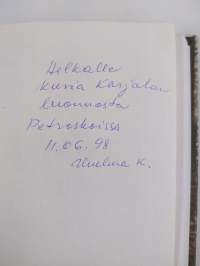 Helkalle
kuvia Karjalan
luonnosta
Petroskoissa
11.06.98
K.